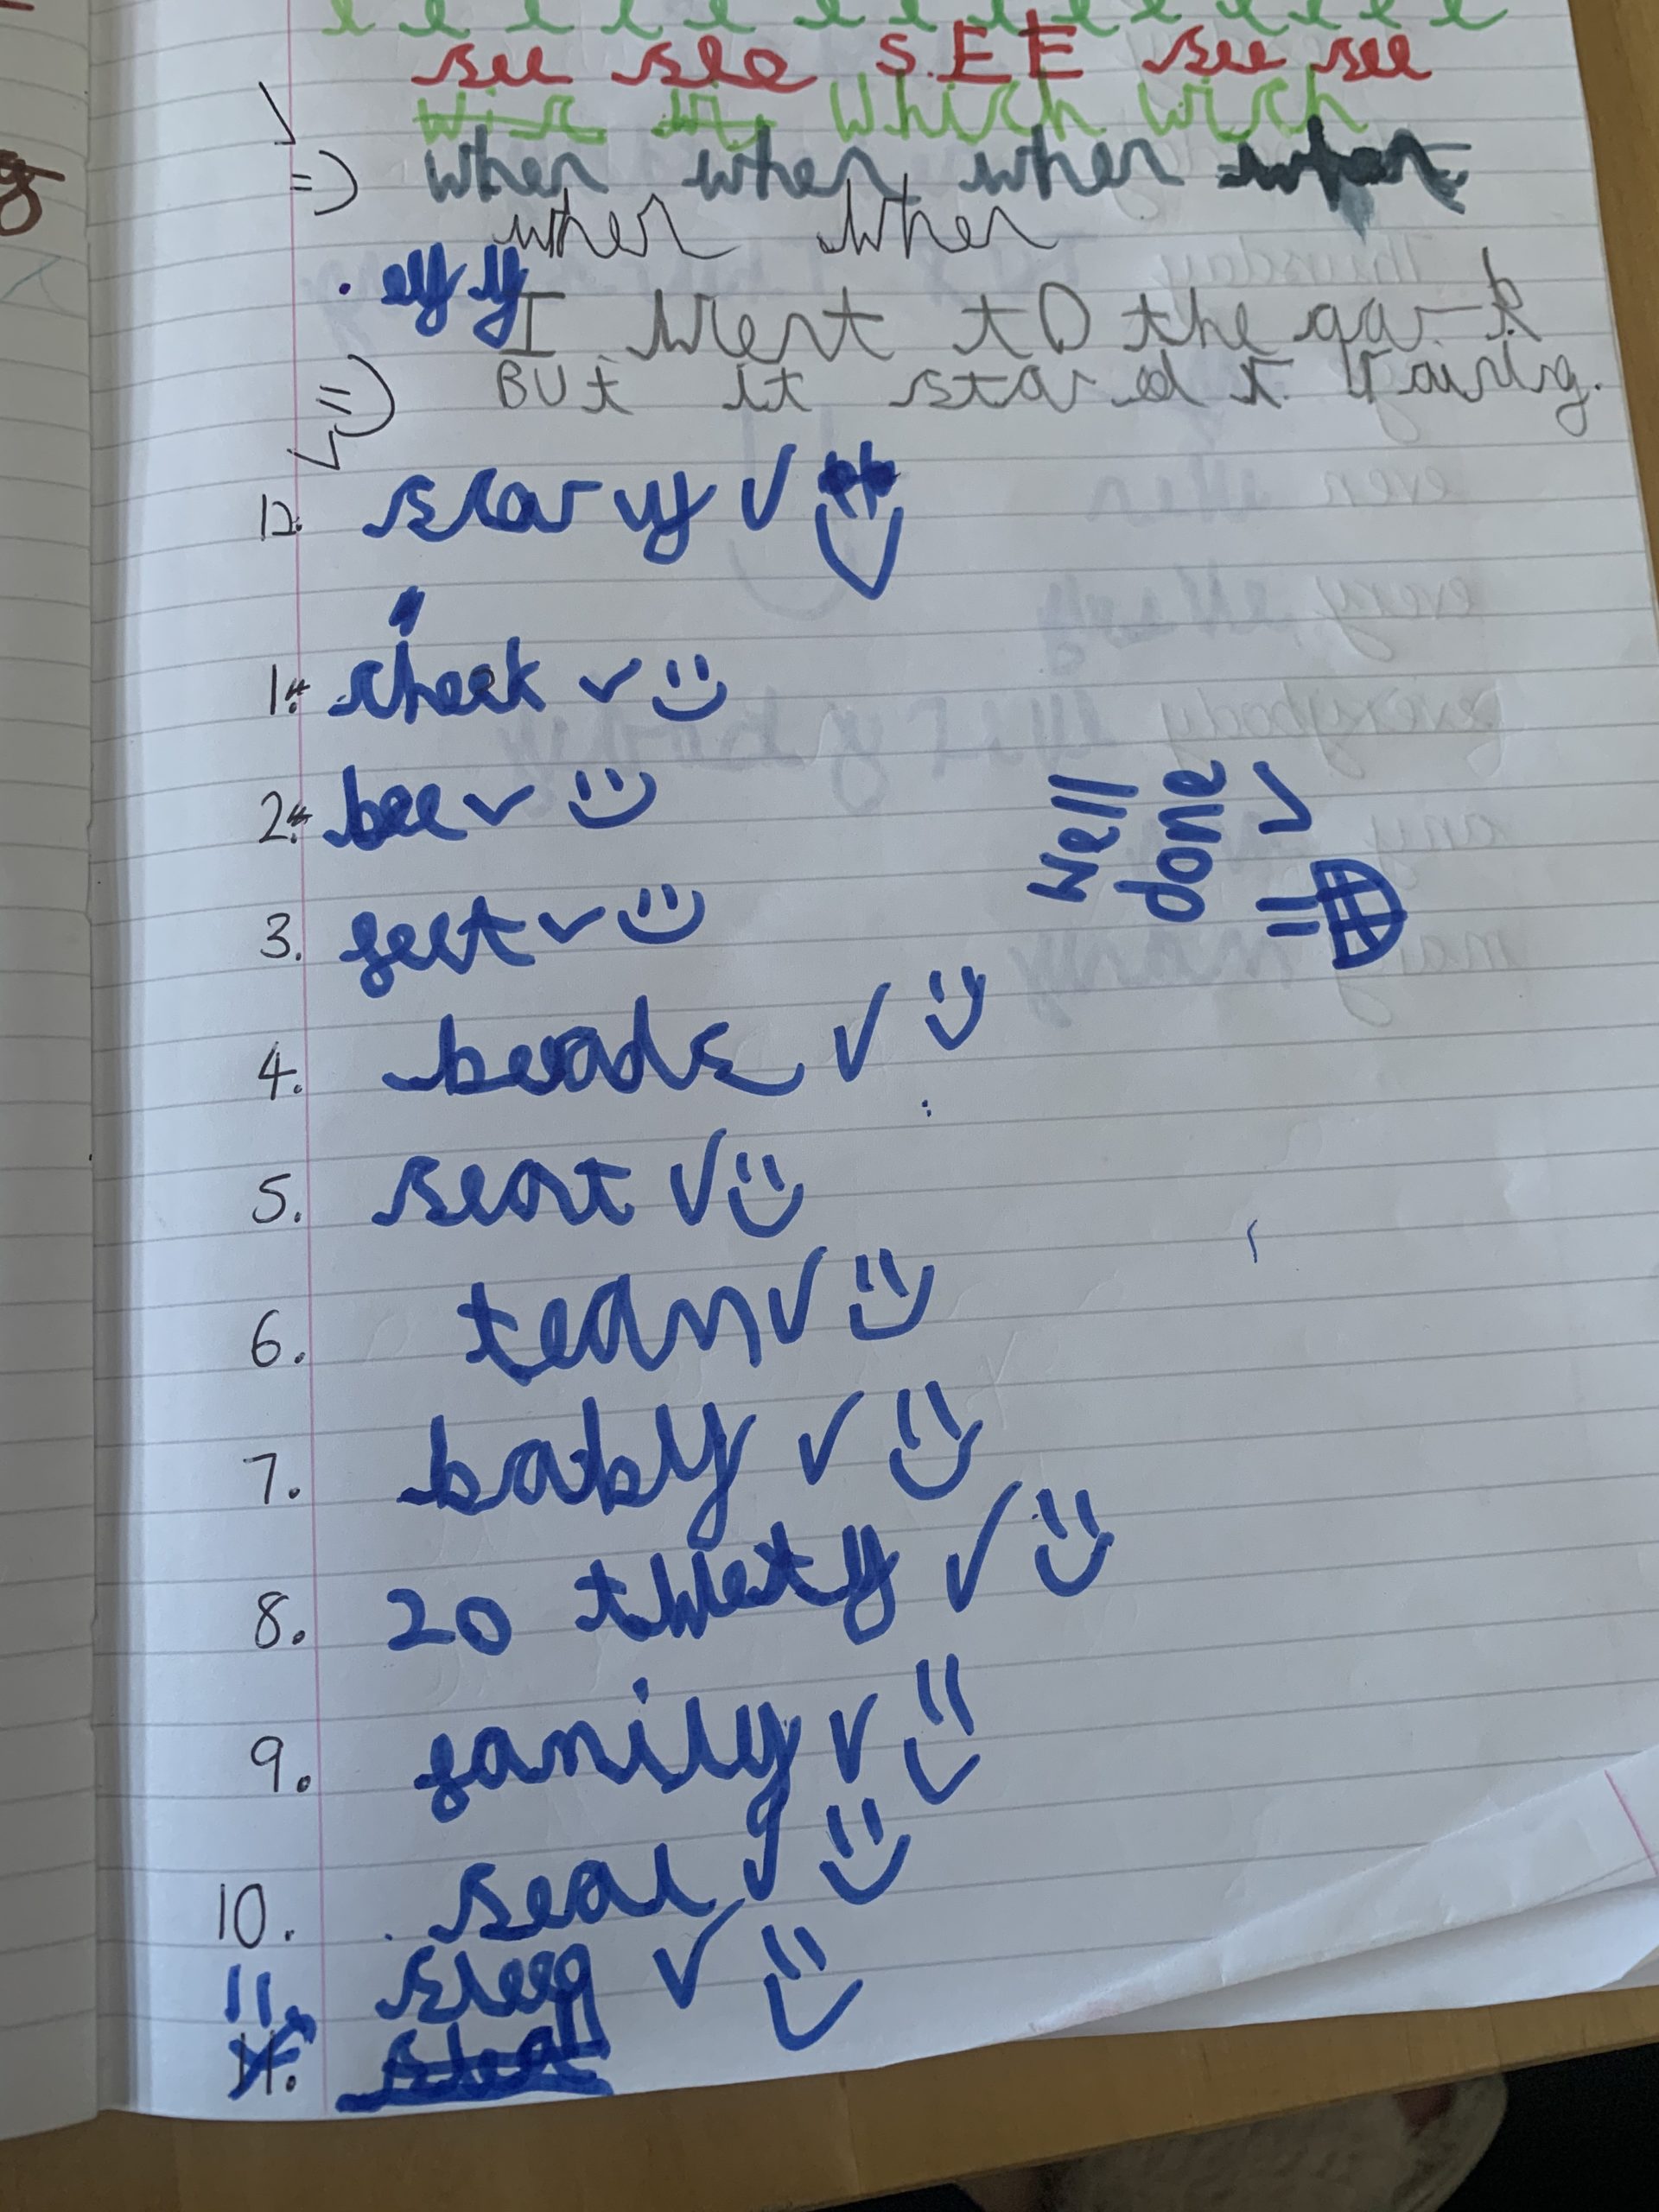 e e e e e e e e e e e e e e
see see S.EE see see
Which wich
when when when when
when when
ey y
I went to the par-k
BUt it stared t raining.
12. scary
1. cheek
2. bee
3. feet
4. beads
5. seat
6. team
7. baby
8. 20 twety
9. family
10. seal
11. sleep
11.
well
done